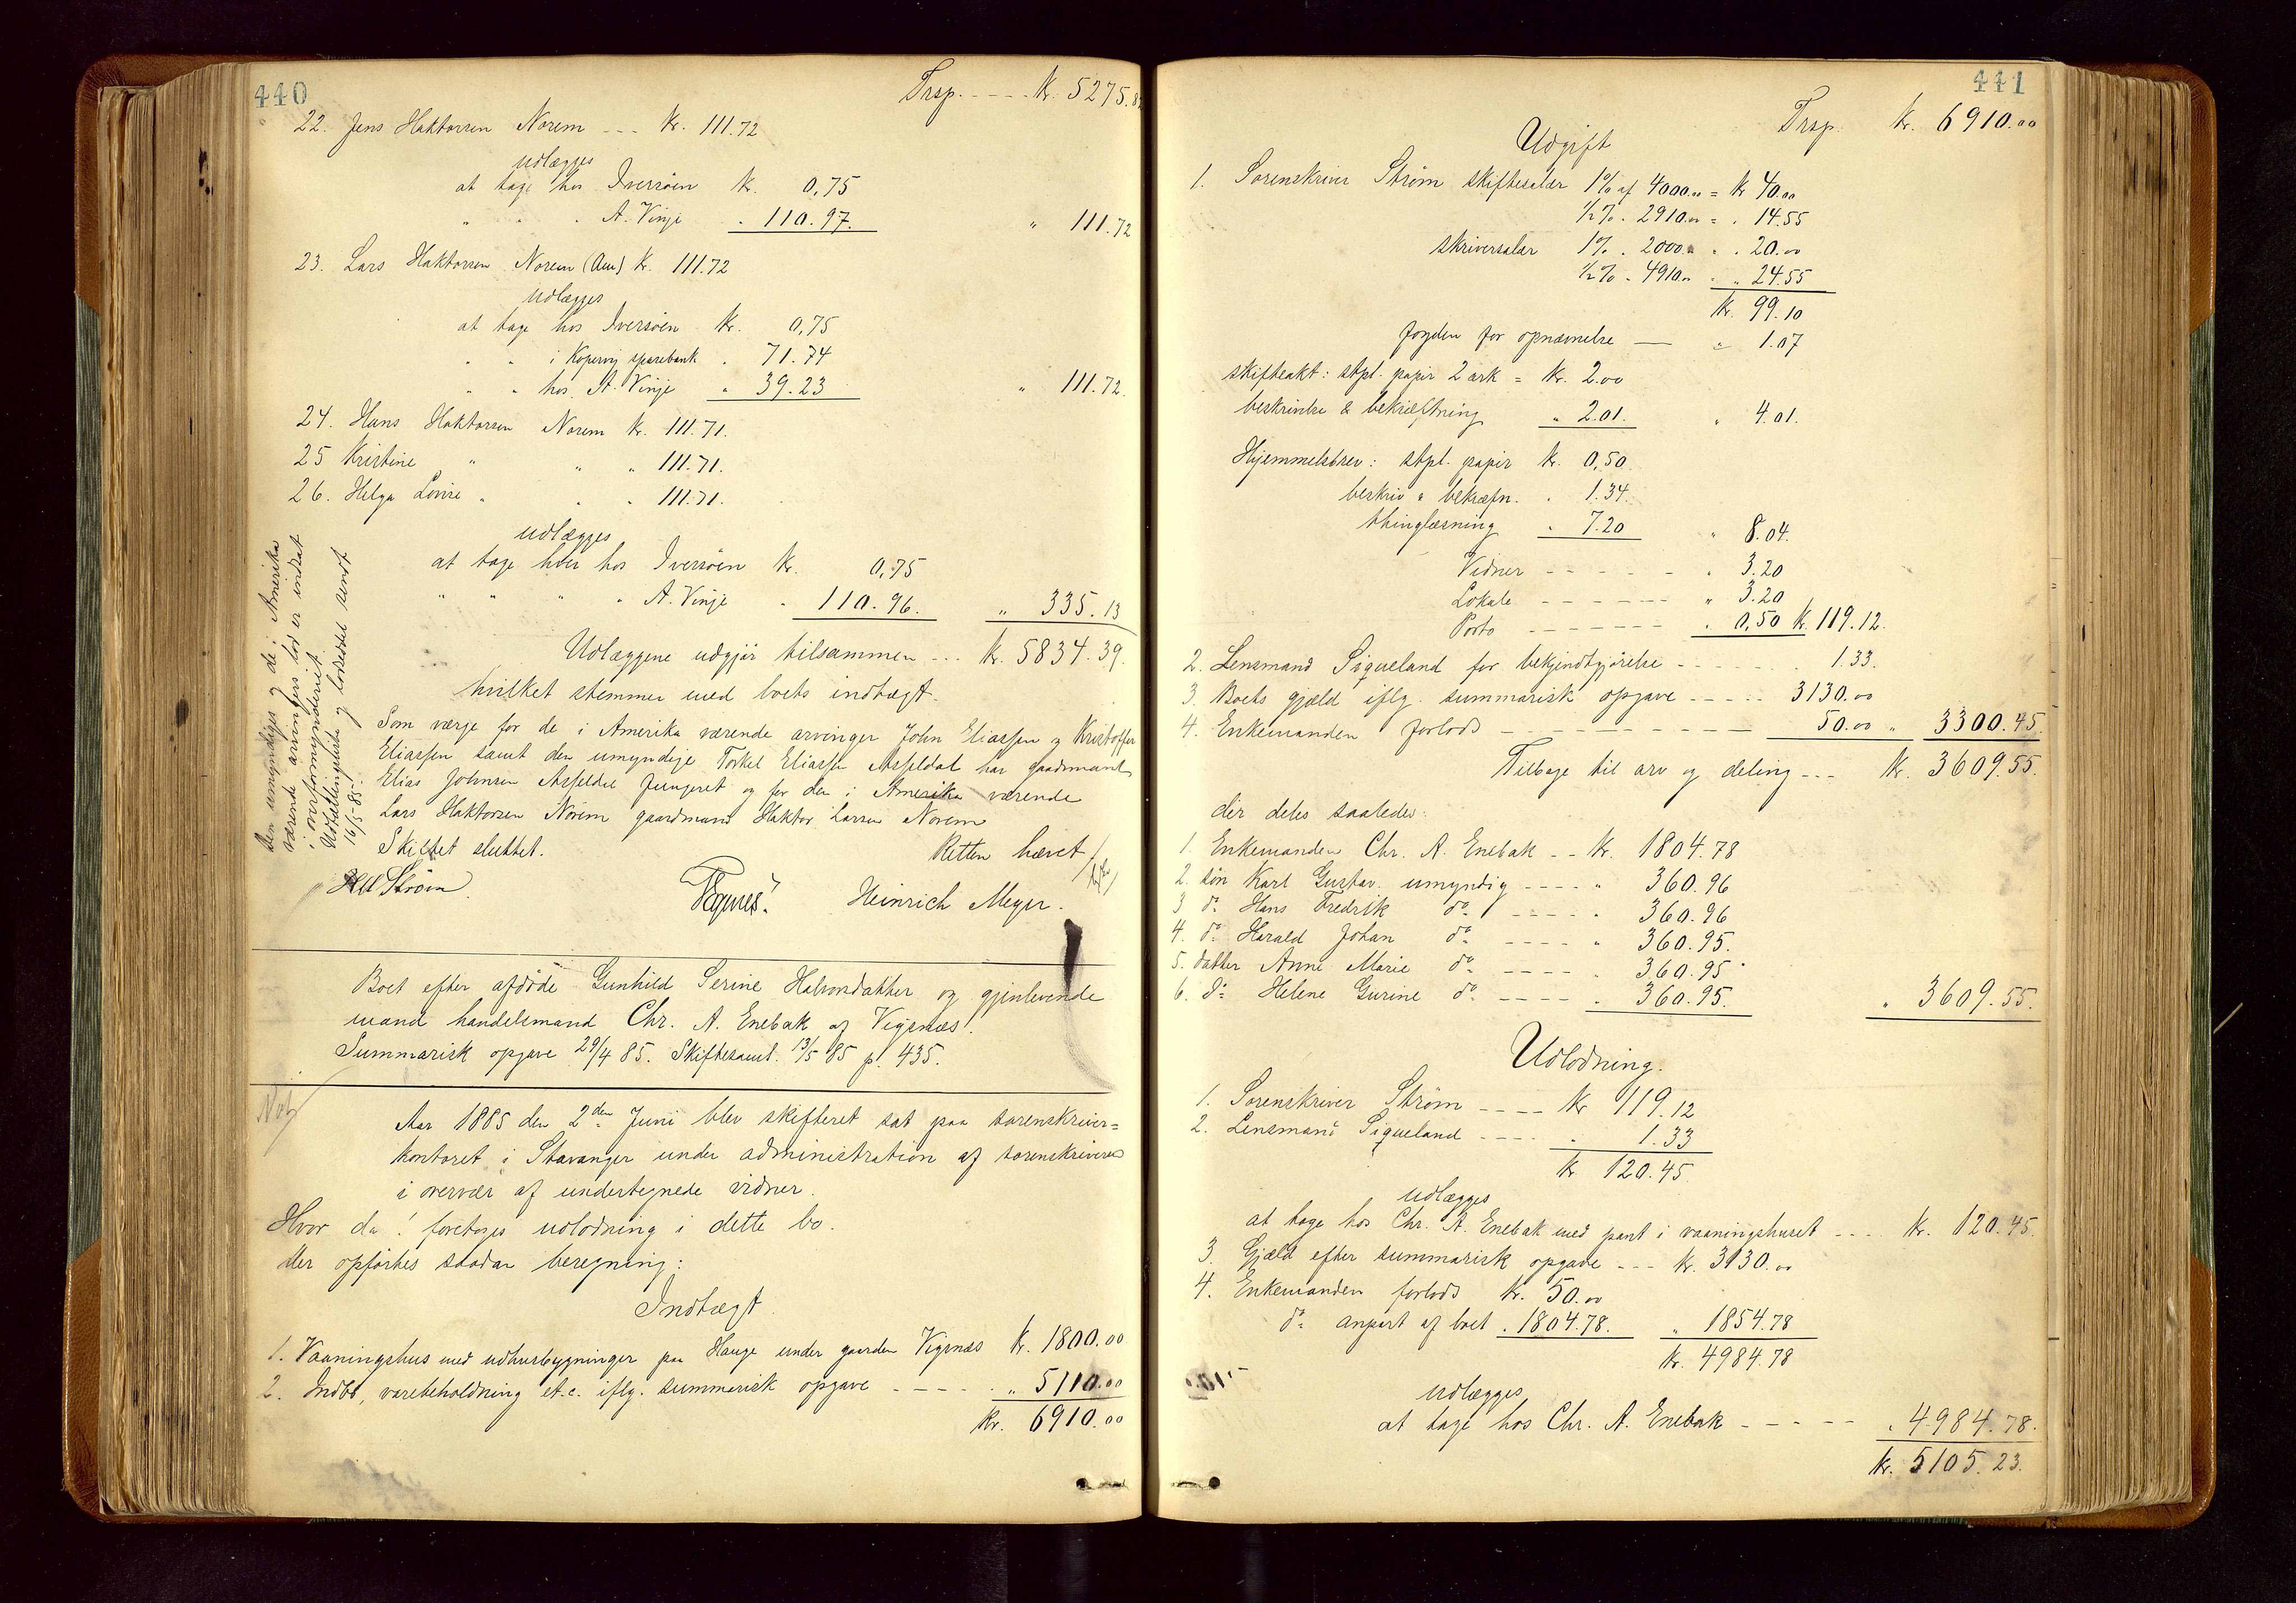 440
Trsp. - - - - Kr. 5275.82
22. Jens Haktorsen Norem - - - Kr. 111.72
udlægges
at tage hos Iversöen Kr. 0,75
" " " A. Vinje " 110.97. " 111.72
23. Lars Haktorsen Norem (Am) Kr. 111.72
udlægges
at tage hos Iversöen Kr. 0,75
" " i Kopervig sparebank " 71.74
" " hos A. Vinje " 39.23 " 111.72.
24. Hans Haktorsen Norem Kr. 111.71.
25 Kristine " " " 111.71.
26. Helga Lovise " " " 111.71.
udlægges
at tage hver hos Iversöen Kr. 0,75
" " " " A. Vinje " 110.96. " 335.13
Udlæggene udgjör tilsammen - - - Kr. 5834.39.
hvilket stemmer med boets indtægt.
Som værge for de i Amerika værende arvinger John Eliassen og Kristoffer
Eliassen samt den umyndige Torkel Eliassen Asfeldal har gaardmand
Elias Johnsen Asfeldal fungeret og for den i Amerika værende
Lars Haktorsen Norem gaardmand Haktor Larsen Norem
Skiftet sluttet. Retten hævet
HW Ström Vognes. Heinrich Meyer.
Den umyndiges og de i Amerika
værende arvingers lod er indsat
i overformynderiet.
Udtællingsliste og lodseddel sendt
16/5 85.
Boet efter afdöde Gunhild Serine Halvorsdatter og gjenlevende
mand handelsmand Chr. A. Enebak af Vigsnæs.
Summarisk opgave 29/4 85. Skiftesaml. 13/5 85 p. 435.
Not
Aar 1885 den 2den Juni blev skifteret sat paa sorenskriver=
kontoret i Stavanger under administration af sorenskriveren
i overvær af undertegnede vidner.
Hvor da! foretoges udlodning i dette bo.
Der opförtes saadan beregning:
Indtægt.
1. Vaaningshus med udhusbygninger paa Hauge under gaarden Vigsnæs Kr. 1800.00
2. Indbo, varebeholdning et.c. iflg. summarisk opgave - - - - - " 5110.00
Kr. 6910.00
441
Trsp. Kr. 6910.00
Udgift
1. Sorenskriver Ström skiftesalær 1% af 4000.00 = Kr 40.00
1/2% " 2910.00 = " 14.55
skriversalær 1% " 2000.00 " " 20.00
1/2% " 4910.00 " " 24.55
Kr. 99.10
fogden for opnævnelse — " 1.07
skifteakt: stpl. papir 2 ark = Kr. 2.00
beskrivelse & bekræftning " 2.01. " 4.01.
Hjemmelsbrev: stpl. papir Kr. 0,50.
beskriv " bekræfn. " 1.34.
thinglæsning " 7.20 " 8.04.
Vidner - - - - - - " 3.20
Lokale - - - - - - " 3.20
Porto - - - - - - " 0,50 Kr. 119.12.
2. Lensmand Siqueland for bekjendtgjörelse - - - - - - 1.33.
3. Boets gjæld iflg. summarisk opgave - - - - - 3130.00
4. Enkemanden forlods - - - - - - - - 50.00 " 3300.45.
Tilbage til arv og deling - - - Kr. 3609.55.
der deles saaledes:
1. Enkemanden Chr. A. Enebak - - Kr. 1804.78
2. sön Karl Gustav. umyndig - - - - " 360.96
3 do Hans Fredrik do - - - - - " 360.96
4. do Harald Johan do - - - - " 360.95.
5. datter Anne Marie do - - - - " 360.95
6. do Helene Gurine do - - - - " 360.95. " 3609.55.
Udlodning.
1. Sorenskriver Ström - - - - Kr 119.12
2. Lensmand Siqueland - - - - " 1.33
Kr 120.45.
udlægges
at tage hos Chr. A. Enebak med pant i vaaningshuset - - - Kr. 120.45.
3. Gjæld efter summarisk opgave - - - Kr. 3130.00
4. Enkemanden forlods Kr. 50.00
do anpart af boet " 1804.78. " 1854.78
Kr. 4984.78
udlægges
at tage hos Chr. A. Enebak - - - - - " 4984.78.
Kr. 5105.23.